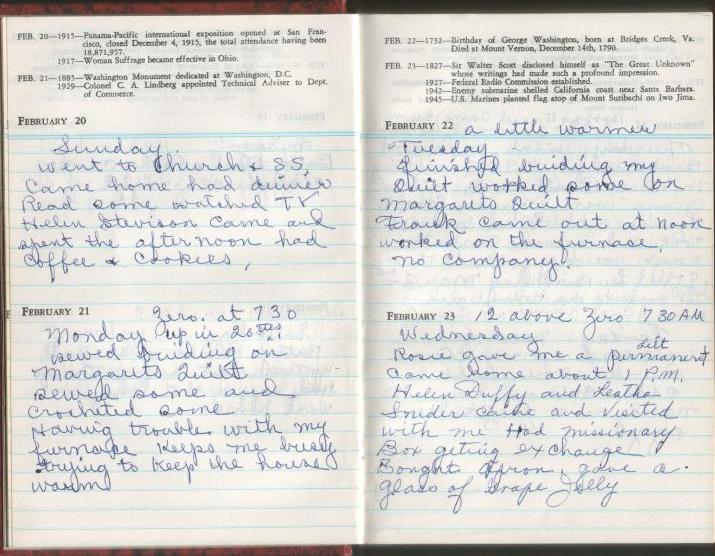 FEB. 20—1915—Panama-Pacific international exposition opened at San Fran-
cisco, closed December 4, 1915, the total attendance having been
18,871,957.
1917—Woman Suffrage became effective in Ohio.
FEB. 21—1885—Washington Monument dedicated at Washington, D.C.
1929—Colonel C. A. Lindberg appointed Technical Adviser to Dept.
of Commerce.
FEBRUARY 20
Sunday.
went to Church & SS,
Came home had dinner
Read some watched TV
Helen Stevison came and
spent the afternoon had
Coffee & Cookies,
FEBRUARY 21 Zero. at 730
Monday up in 20ties
sewed binding on
Margarets Quilt
sewed some and
Crocheted some
Having trouble with my
furnace Keeps me busy
trying to Keep the house
warm
FEB. 22—1732—Birthday of George Washington, born at Bridges Creek, Va.
Died at Mount Vernon, December 14th, 1790.
FEB. 23—1827—Sir Walter Scott disclosed himself as "The Great Unknown"
whose writings had made such a profound impression.
1927—Federal Radio Commission established.
1942—Enemy submarine shelled California coast near Santa Barbara.
1945—U.S. Marines planted flag atop of Mount Suribachi on Iwo Jima.
FEBRUARY 22 a little warmer
Tuesday
finished binding my
Quilt worked some on
Margarets Quilt
Frank came out at noon
worked on the furnace,
no company.
FEBRUARY 23 12 above Zero 730 AM
Wednesday
Rosie gave me a Lilt permanent
came home about 1 P.M.
Helen Duffy and Leatha
Snider came and visited
with me Had missionary
Box geting exchange
Bought Apron, gave a
glass of Grape Jelly